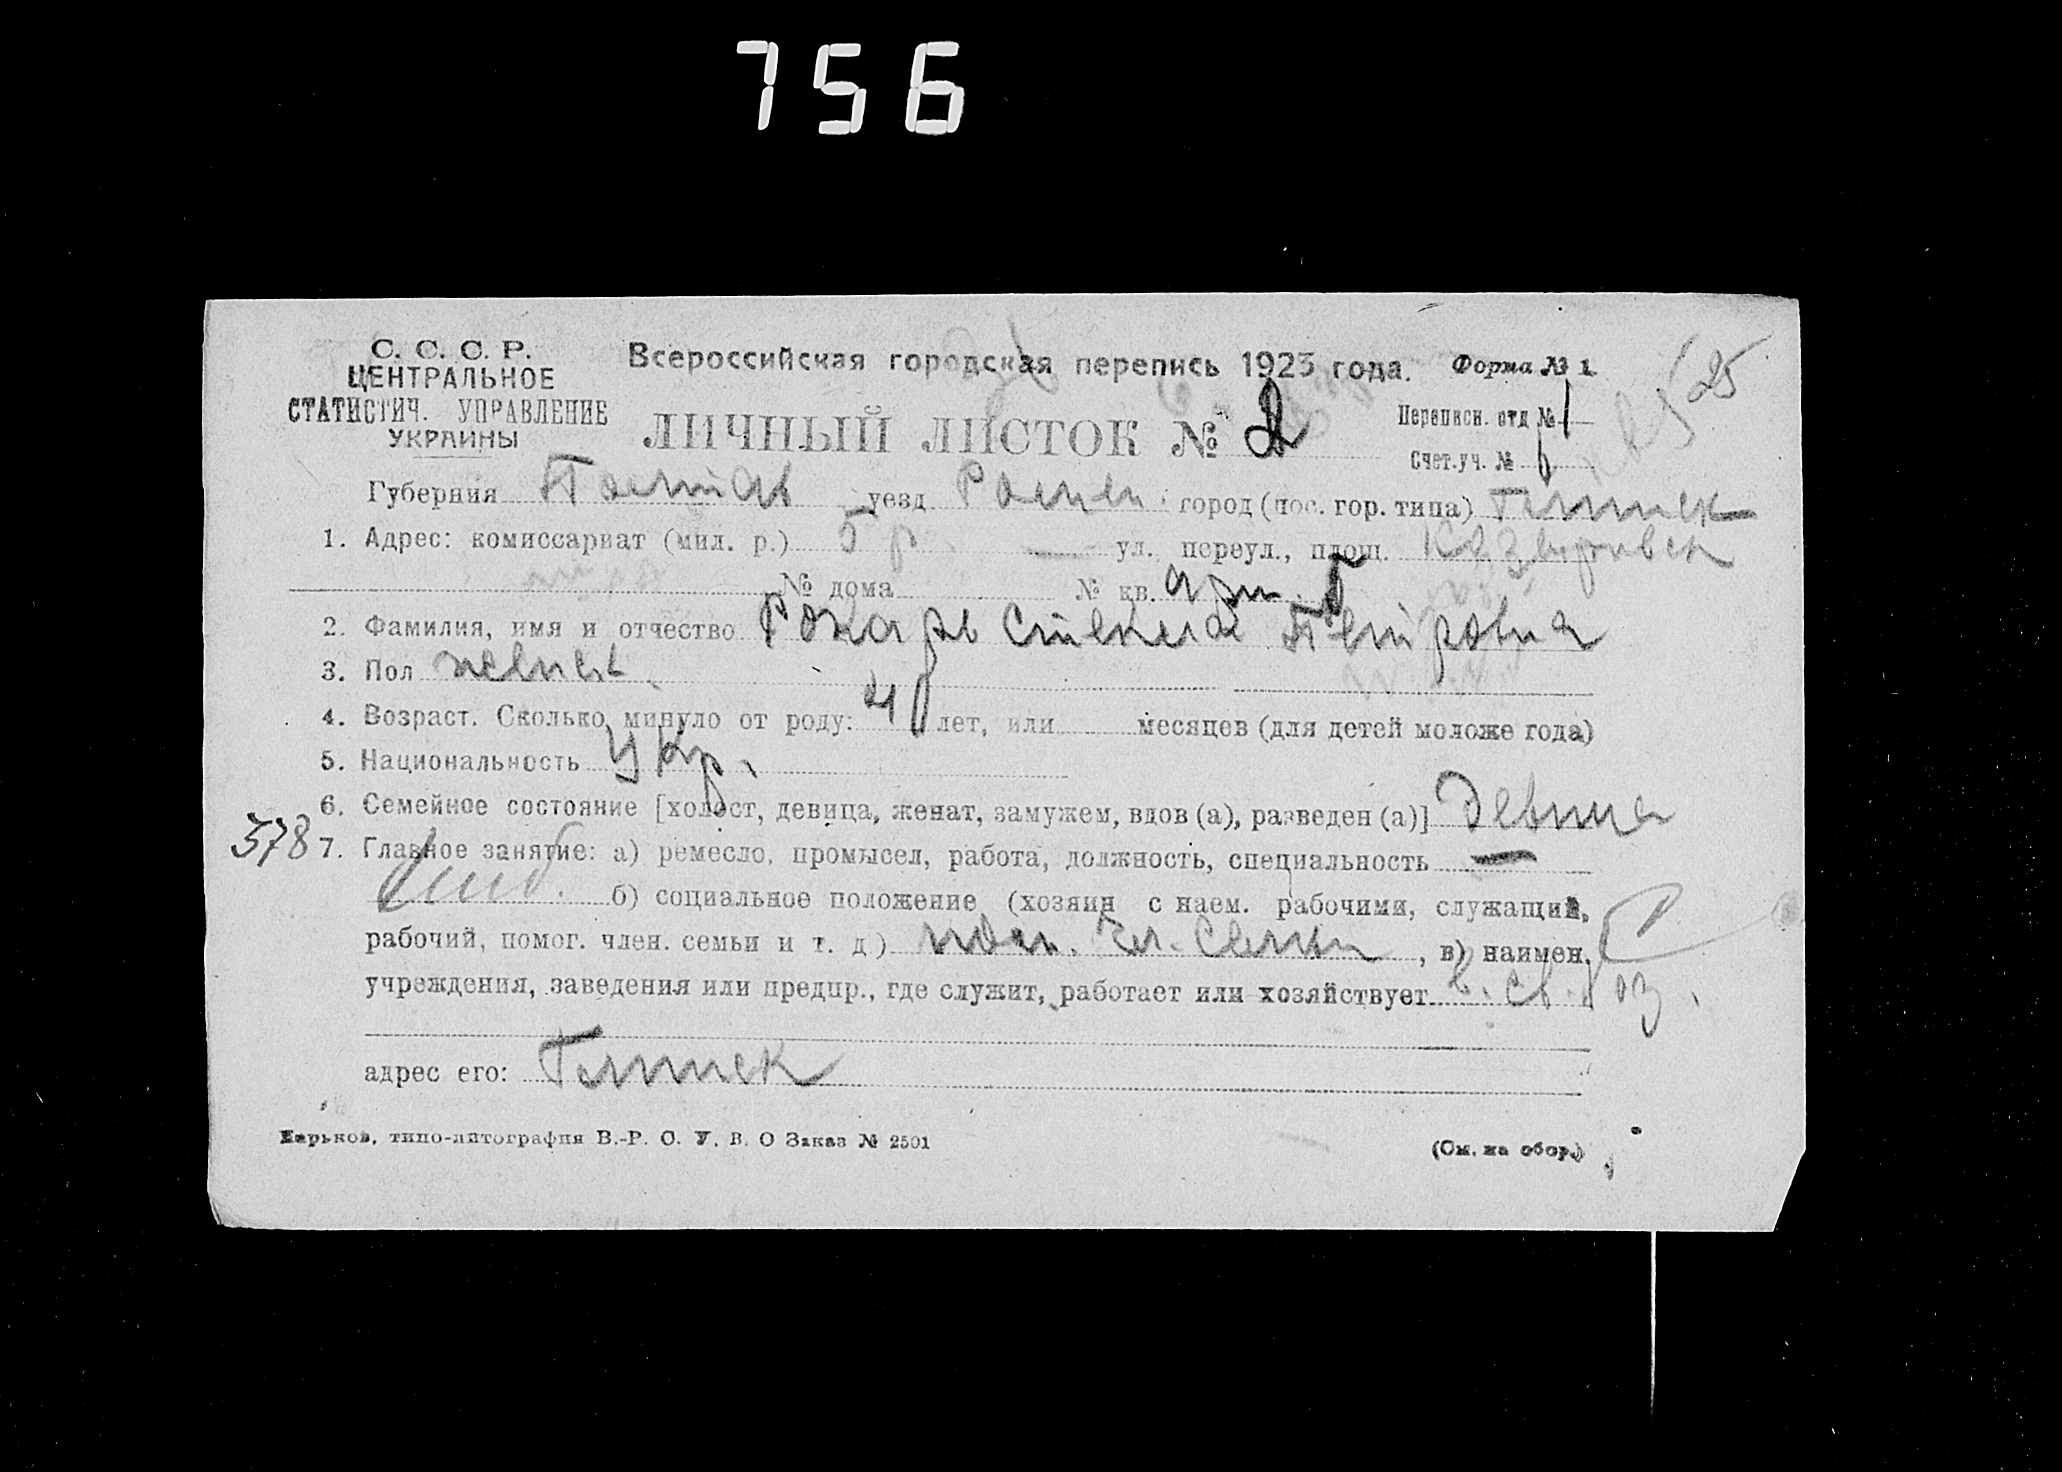 756
С. С. С. Р.
ЦЕНТРАЛЬНОЕ
СТАТИСТИЧ. УПРАВЛЕНИЕ
УКРАИНЫ
Всероссийская городская перепись 1923 года.
Форма № 1.
25
ЛИЧНЫЙ ЛИСТОК № 2
Переписн. отд № 1
Счет.уч. №
Губерния Полтав уезд Ромен. город (пос. гор. типа)
1. Адрес: комиссариат (мил. р.) 5 р. ул. переул., площ.
№ дома № кв.
2. Фамилия, имя и отчество Петровна
3. Пол женск.
4. Возраст. Сколько минуло от роду: лет, или месяцев (для детей моложе года)
5. Национальность Укр.
6. Семейное состояние [холост, девица, женат, замужем, вдов (а), разведен (а)] девица
378 7. Главное занятие: а) ремесло, промысел, работа, должность, специальность —
б) социальное положение (хозяин с наем. рабочими, служащий,
рабочий, помог. член. семьи и т. д) пом. чл. семьи, в) наимен.
учреждения, заведения или предпр., где служит, работает или хозяйствует в св. хоз.
адрес его:
Харьков, типо-литография В.-Р. С. У. В. О Заказ № 2501
(См. на обор.)